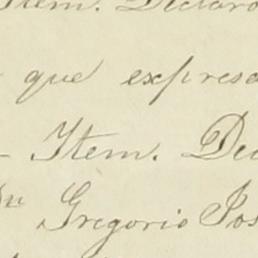 Item. Declaro
que expresa
- Item. Dec
Dn Gregorio Jos